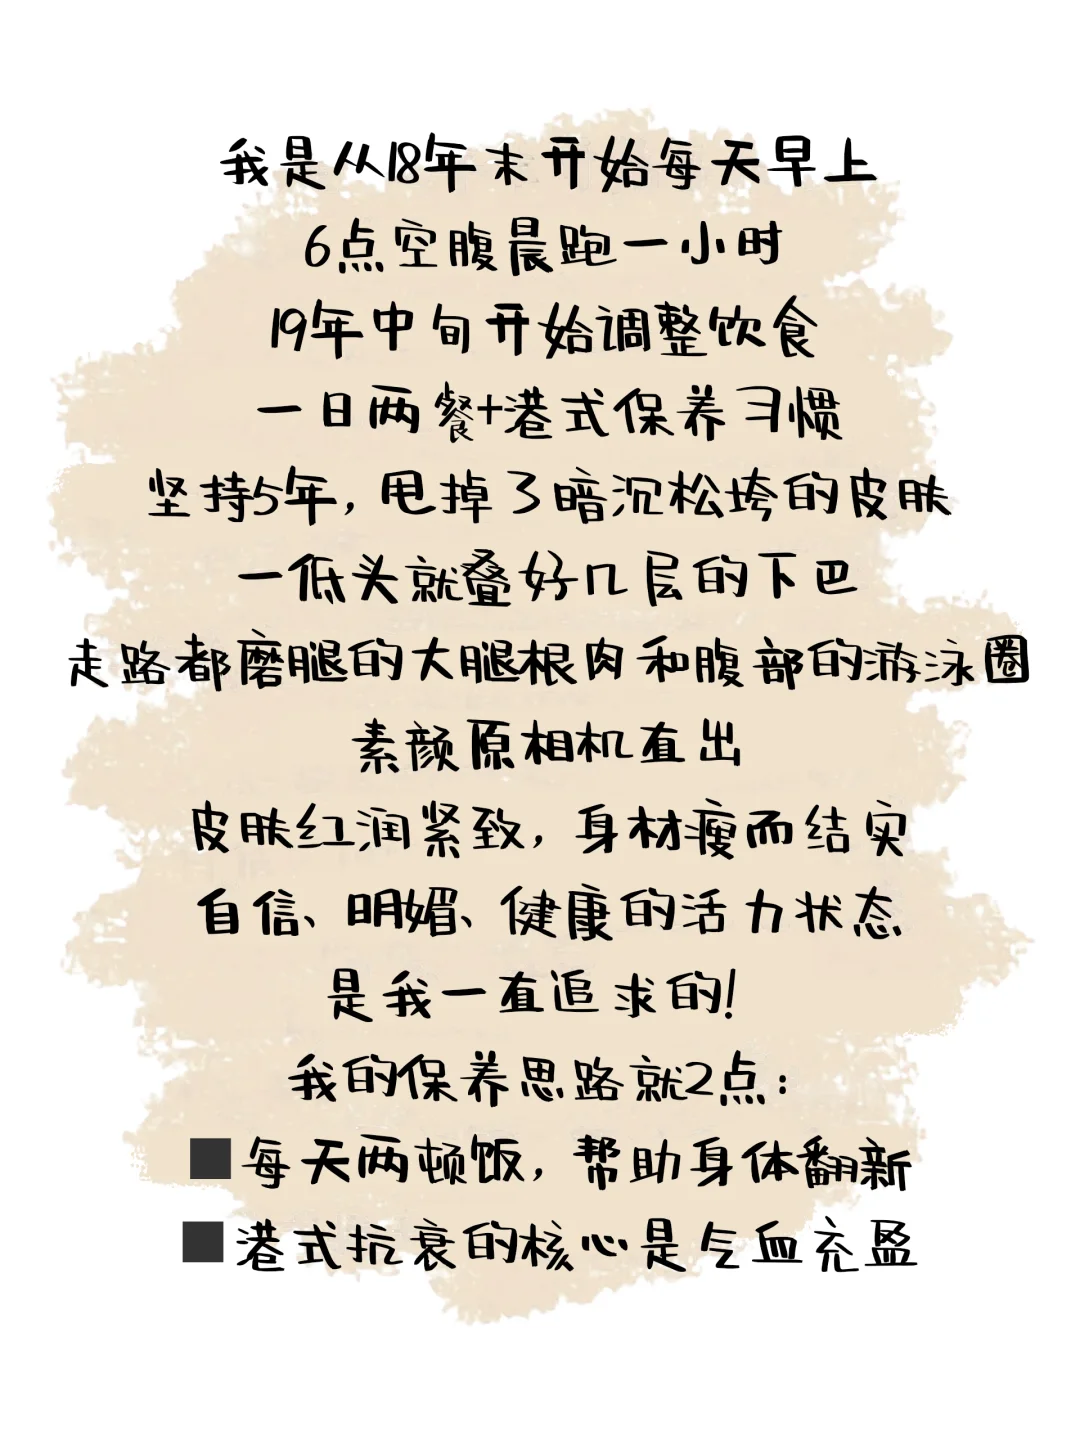 我是从18年末开始每天早上
6点空腹晨跑一小时
19年中旬开始调整饮食
一日两餐+港式保养习惯
坚持5年,甩掉了暗沉松垮的皮肤
一低头就叠好几层的下巴
走路都磨腿的大腿根肉和腹部的游泳圈
素颜原相机直出
皮肤红润紧致,身材瘦而结实
自信、明媚、健康的活力状态
是我一直追求的!
我的保养思路就2点:
■每天两顿饭,帮助身体翻新
■港式抗衰的核心是气血充盈